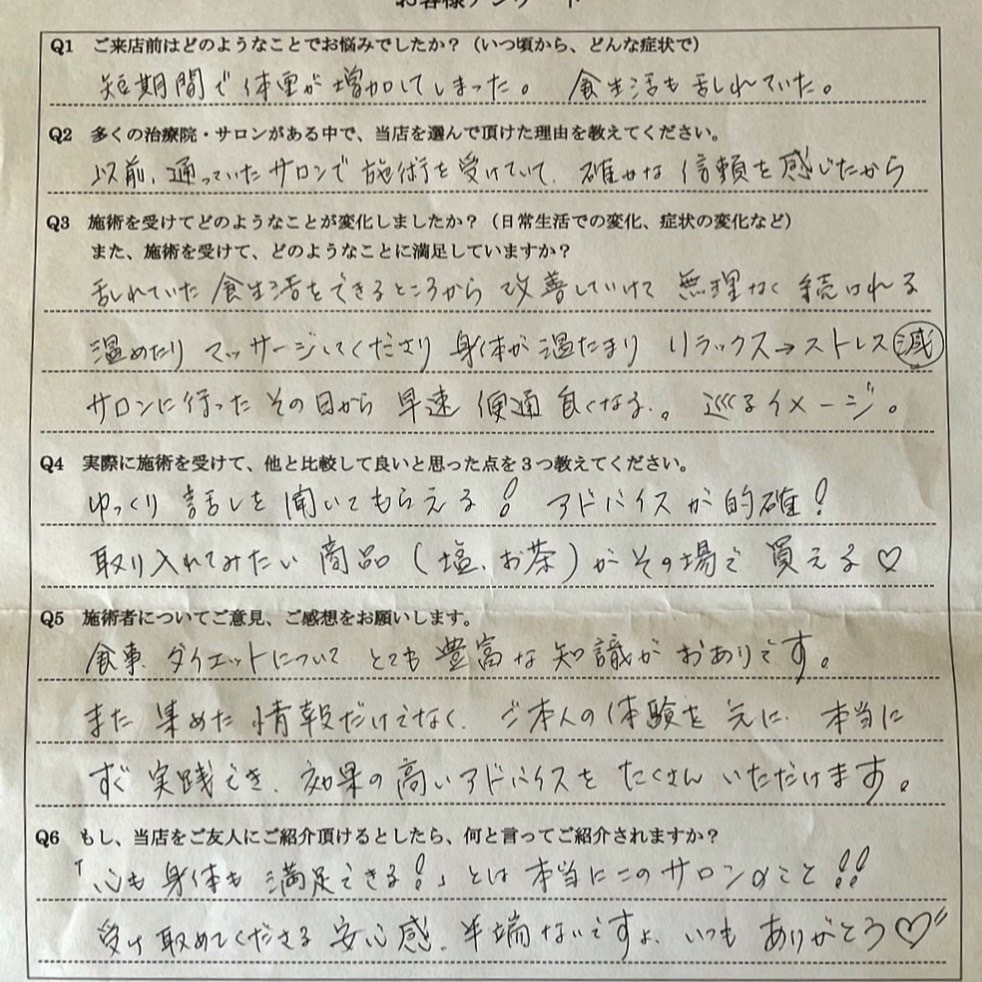 お客様アンケート
Q1 ご来店前はどのようなことでお悩みでしたか？（いつ頃から、どんな症状で）
短期間で体重が増加してしまった。 食生活も乱れていた。
Q2 多くの治療院・サロンがある中で、当店を選んで頂けた理由を教えてください。
以前、通っていたサロンで施術を受けていて、確かな信頼を感じたから
Q3 施術を受けてどのようなことが変化しましたか？（日常生活での変化、症状の変化など）
また、施術を受けて、どのようなことに満足していますか？
乱れていた食生活をできるところから改善していけて無理なく続けれる
温めたりマッサージしてくださり身体が温たまりリラックス→ストレス減
サロンに行ったその日から早速便通良くなる。。巡るイメージ。
Q4 実際に施術を受けて、他と比較して良いと思った点を３つ教えてください。
ゆっくり話しを聞いてもらえる！ アドバイスが的確！
取り入れてみたい商品（塩、お茶）がその場で買える♡
Q5 施術者についてご意見、ご感想をお願いします。
食事、ダイエットについてとても豊富な知識がおありです。
また集めた情報だけでなく、ご本人の体験を元に、本当に
すぐ実践でき、効果の高いアドバイスをたくさんいただけます。
Q6 もし、当店をご友人にご紹介頂けるとしたら、何と言ってご紹介されますか？
「心も身体も満足できる！」とは本当にこのサロンのこと！！
受け取めてくださる安心感、半端ないですよ、いつもありがとう♡〃